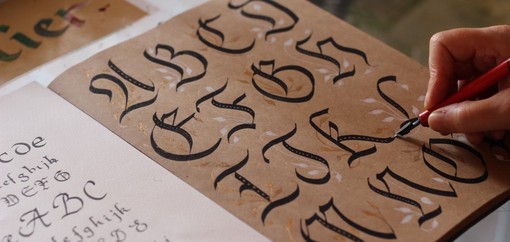 tier
A B C D
E F G H
I J K L
M N O
c de
efghijk
DEFG
ABC
efghijk